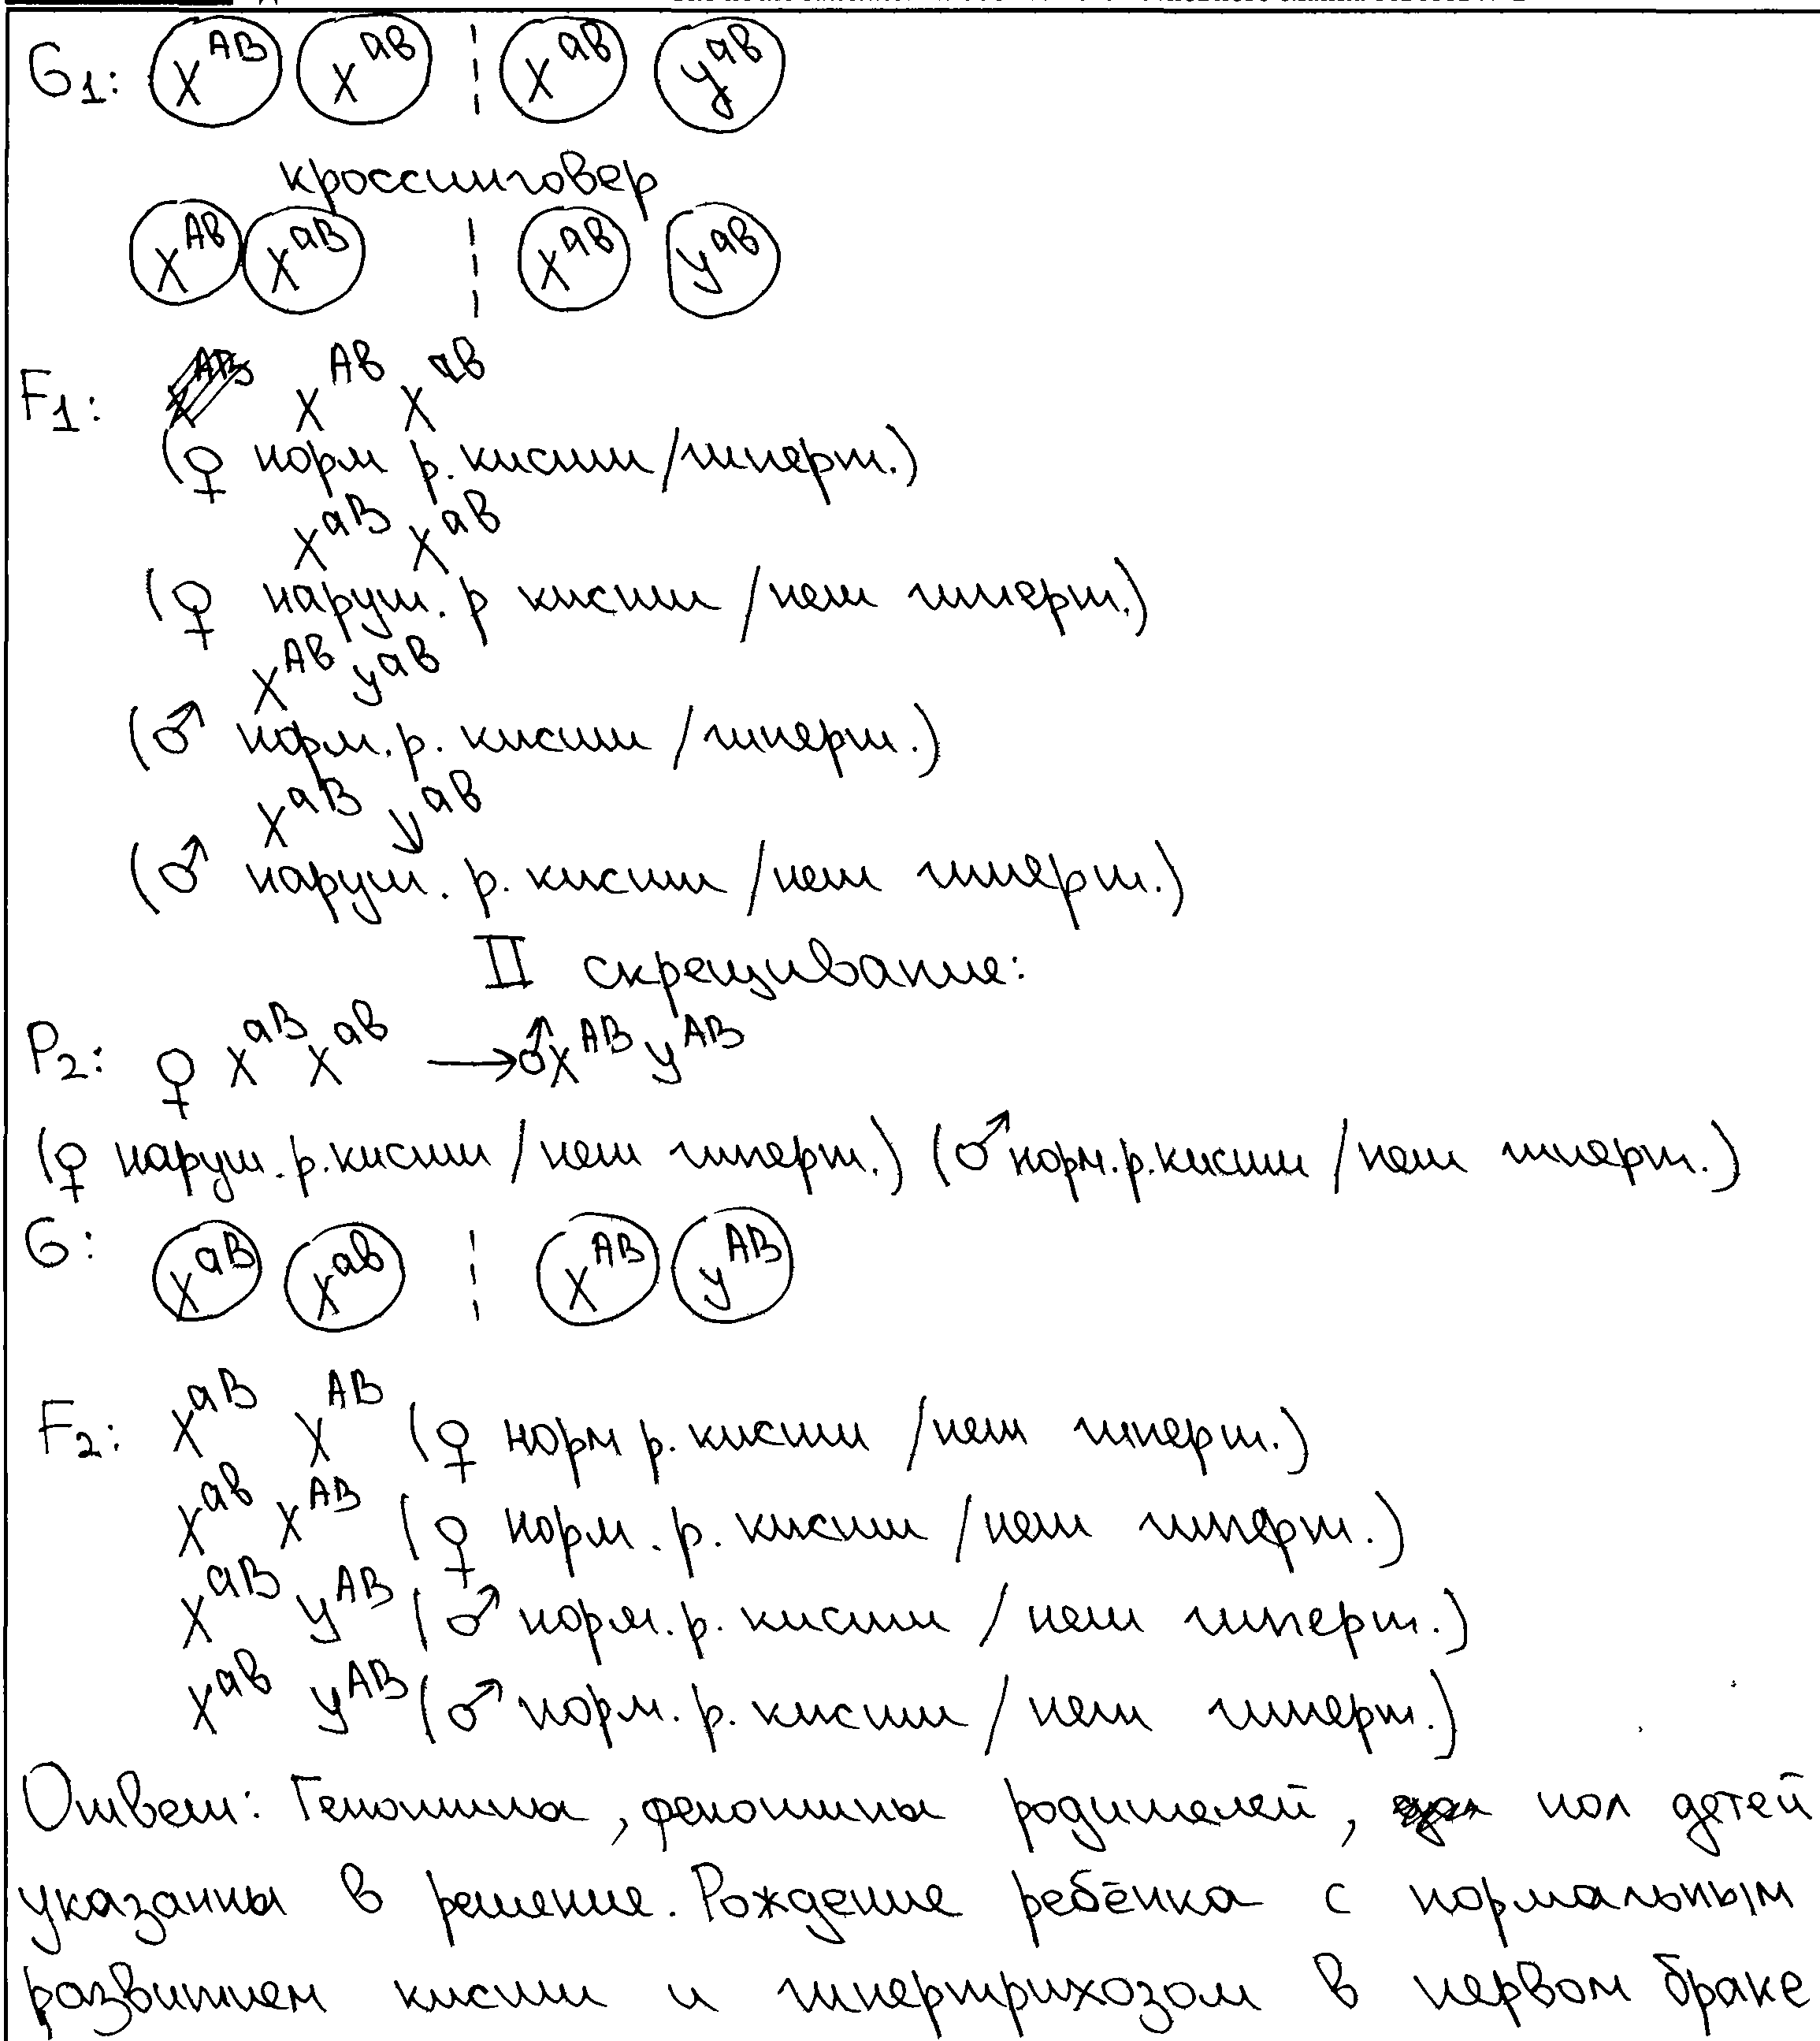 G₁: X^AB X^ab ¦ X^ab y^ab
кроссинговер
X^Ab X^aB ¦ X^ab y^ab
F₁: X^Ab X^ab
(♀ норм р. кисти/гиперт.)
X^aB X^ab
(♀ наруш. р кисти /нет гиперт.)
X^Ab y^ab
(♂ норм. р. кисти /гиперт.)
X^aB y^ab
(♂ наруш. р. кисти /нет гиперт.)
II скрещивание:
P₂: ♀ X^aB X^ab → ♂X^AB y^AB
(♀ наруш. р. кисти /нет гиперт.) (♂ норм. р. кисти /нет гиперт.)
G: X^aB X^ab ¦ X^AB y^AB
F₂: X^aB X^AB (♀ норм р. кисти /нет гиперт.)
X^ab X^AB (♀ норм. р. кисти /нет гиперт.)
X^aB y^AB (♂ норм. р. кисти / нет гиперт.)
X^ab y^AB (♂ норм. р. кисти / нет гиперт.)
Ответ: Генотипы, фенотипы родителей, пол детей
указанны в решение. Рождение ребёнка с нормальным
развитием кисти и гипертрихозом в первом браке